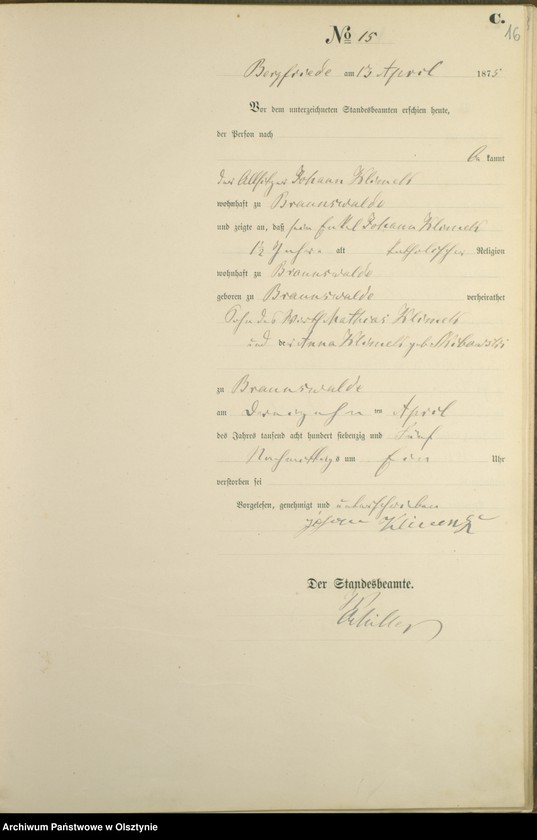 C.
16
No 15
Bergfriede am 13 April 1875
Vor dem unterzeichneten Standesbeamten erschien heute,
der Person nach
bekannt
der Altsitzer Johann Klimek
wohnhaft zu Braunswalde
und zeigte an, daß sein Enkel Johann Klimek
1½ Jahre alt katholischer Religion
wohnhaft zu Braunswalde
geboren zu Braunswalde verheirathet
Sohn des Wirth Mathias Klimek
und der Anna Klimek geb.
zu Braunswalde
am April
des Jahres tausend acht hundert siebenzig und fünf
Nachmittags um Ein Uhr
verstorben sei
Vorgelesen, genehmigt und unterschrieben
Der Standesbeamte.
Archiwum Państwowe w Olsztynie